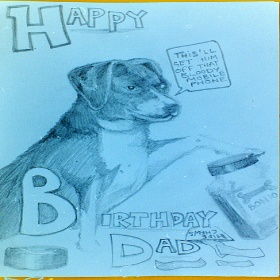 HAPPY
THIS'LL
GET HIM
OFF THAT
BLOODY
MOBILE
PHONE
BIRTHDAY
DADY